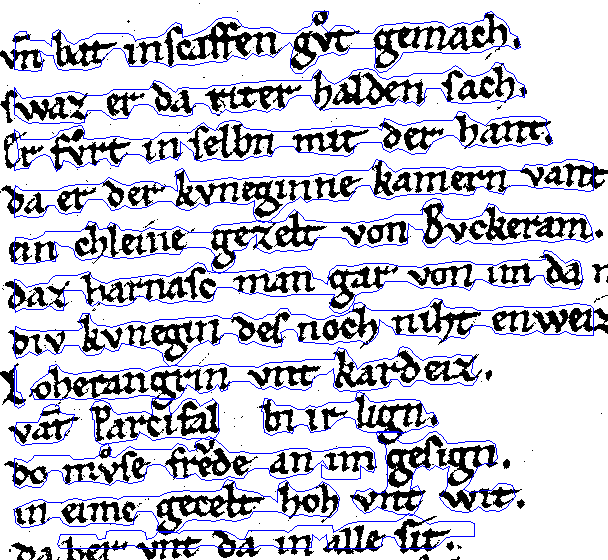 vn̄ bat inscaffen gůt gemach.
swaz er da riter halden sach.
Er fvrt in selbn mit der hant.
da er der kvneginne kamern vant
ein chleine gezelt von Bvckeram.
daz harnasc man gar von im da n
div kvnegin des noch niht enweiz
Loherangrin vnt kardeiz.
vāt Parcifal bi ir lign.
do mv̊se frev̊de an im gesign.
in eime gecelt hoh vnt wit.
da her vnt da in alle sit.